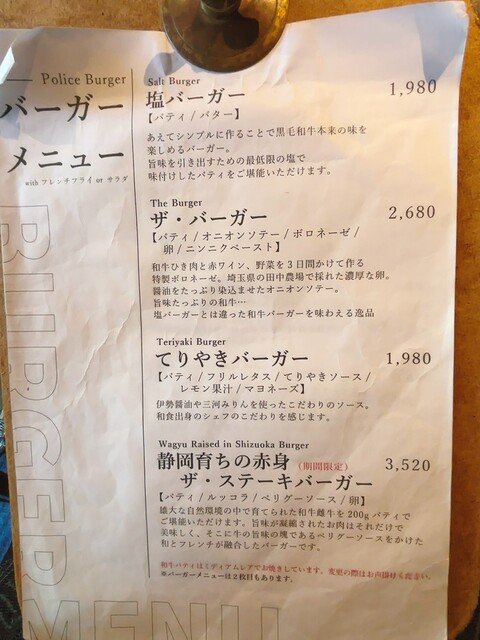 Police Burger
バーガー
メニュー
with フレンチフライ or サラダ
Salt Burger
塩バーガー 1,980
【パティ / バター】
あえてシンプルに作ることで黒毛和牛本来の味を
楽しめるバーガー。
旨味を引き出すための最低限の塩で
味付けしたパティをご堪能いただけます。
The Burger
ザ・バーガー 2,680
【パティ / オニオンソテー / ボロネーゼ /
卵 / ニンニクペースト】
和牛ひき肉と赤ワイン、野菜を3日間かけて作る
特製ボロネーゼ。埼玉県の田中農場で採れた濃厚な卵。
醤油をたっぷり染込ませたオニオンソテー。
旨味たっぷりの和牛…
塩バーガーとは違った和牛バーガーを味わえる逸品
Teriyaki Burger
てりやきバーガー 1,980
【パティ / フリルレタス / てりやきソース /
レモン果汁 / マヨネーズ】
伊勢醤油や三河みりんを使ったこだわりのソース。
和食出身のシェフのこだわりを感じます。
Wagyu Raised in Shizuoka Burger
静岡育ちの赤身（期間限定） 3,520
ザ・ステーキバーガー
【パティ / ルッコラ / ペリグーソース / 卵】
雄大な自然環境の中で育てられた和牛雌牛を200gパティで
ご堪能いただけます。旨味が凝縮されたお肉はそれだけで
美味しく、そこに牛の旨味の塊であるペリグーソースをかけた
和とフレンチが融合したバーガーです。
和牛パティはミディアムレアでお焼きしています。変更の際はお声掛けください。
※バーガーメニューは2枚目もあります。
BURGER
MENU